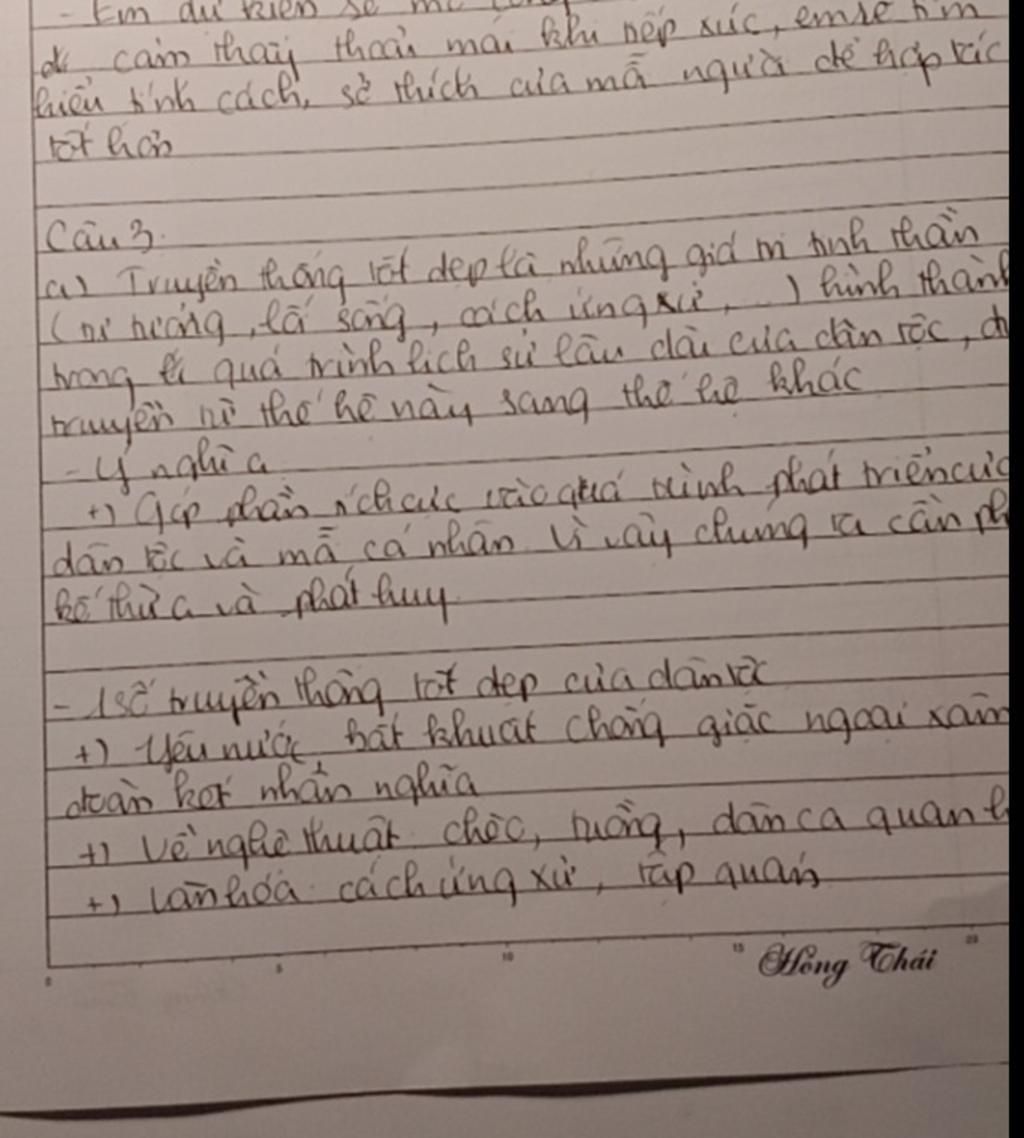 - Em dự kiến sẽ
để cảm thấy thoải mái khi tiếp xúc, em sẽ tìm
hiểu tính cách, sở thích của mỗi người để hợp tác
tốt hơn
Câu 3.
a) Truyền thống tốt đẹp là những giá trị tinh thần
(tư tưởng, lối sống, cách ứng xử, ...) hình thành
trong quá trình lịch sử lâu dài của dân tộc, đ
truyền từ thế hệ này sang thế hệ khác
- Ý nghĩa
+) Góp phần tích cực vào quá trình phát triển của
dân tộc và mỗi cá nhân. Vì vậy chúng ta cần ph
kế thừa và phát huy
- 1 số truyền thống tốt đẹp của dân tộc
+) Yêu nước, bất khuất chống giặc ngoại xâm
đoàn kết nhân nghĩa
+) Về nghệ thuật chèo, tuồng, dân ca quan h
+) Văn hóa: cách ứng xử, tập quán
0 5 10 15 20
Hồng Thái